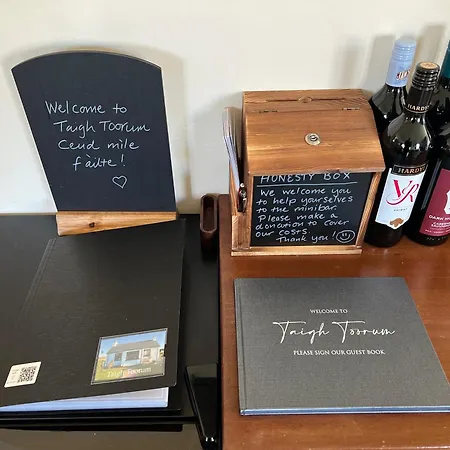 Welcome to
Taigh Toorum
Ceud mìle
fàilte!
HONESTY BOX
We welcome you
to help yourselves
to the minibar.
Please make a
donation to cover
our costs.
Thank you!
HARDYS
VR
WELCOME TO
Taigh Toorum
PLEASE SIGN OUR GUEST BOOK
Taigh Toorum